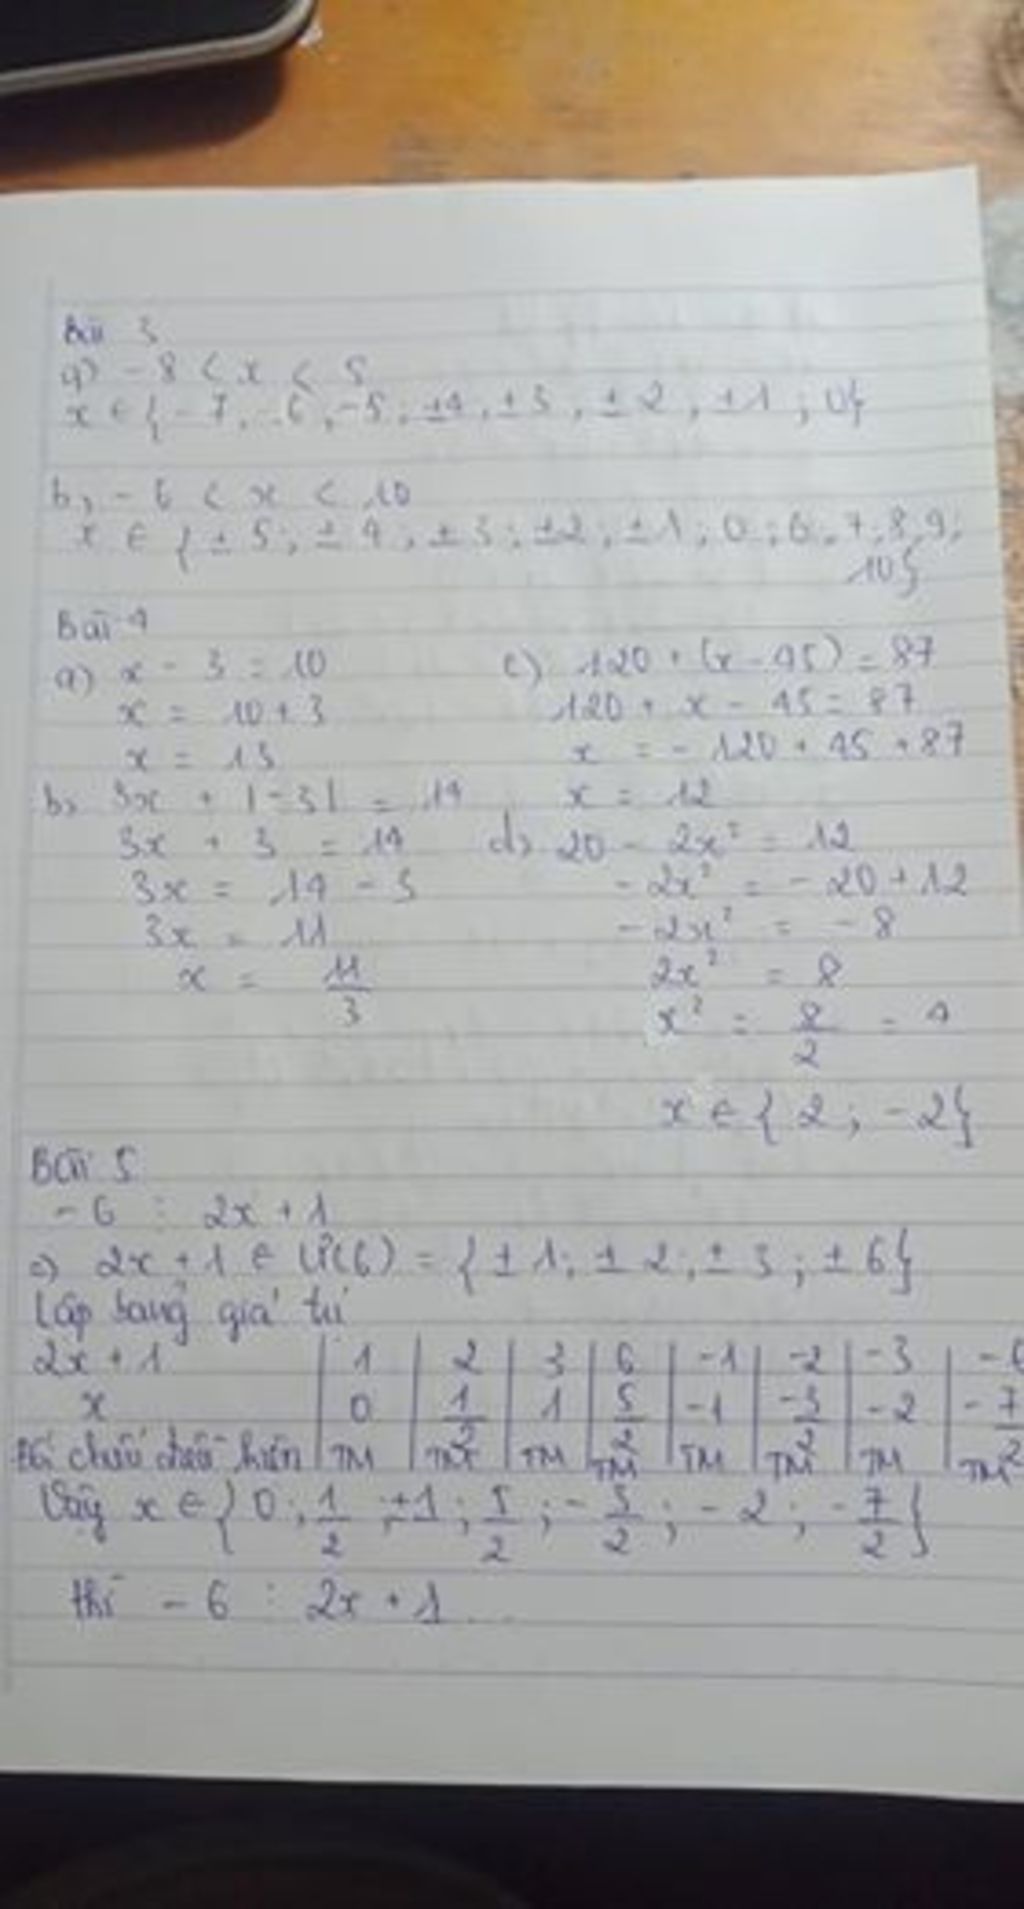 Bài 3
a) -8 < x < 5
x ∈ { -7, -6, -5, ±4, ±3, ±2, ±1; 0}
b, -6 < x < 10
x ∈ { ±5; ±4, ±3; ±2; ±1; 0; 6, 7, 8, 9;
10}
Bài 4
a) x - 3 = 10
x = 10 + 3
x = 13
b, 3x + |-3| = 14
3x + 3 = 14
3x = 14 - 3
3x = 11
x = 11/3
c) 120 + (x - 45) = 87
120 + x - 45 = 87
x = - 120 + 45 + 87
x = 12
d, 20 - 2x² = 12
- 2x² = - 20 + 12
- 2x² = - 8
2x² = 8
x² = 8/2 = 4
x ∈ { 2; -2}
Bài 5
- 6 ⋮ 2x + 1
2x + 1 ∈ Ư(6) = { ±1; ±2; ±3; ±6}
Lập bảng giá trị
2x + 1 | 1 | 2 | 3 | 6 | -1 | -2 | -3 | -6
x | 0 | 1/2 | 1 | 5/2 | -1 | -3/2 | -2 | -7/2
chiếu điều kiện | TM | TM | TM | TM | TM | TM | TM | TM
Vậy x ∈ { 0; 1/2; ±1; 5/2; -3/2; -2; -7/2 }
thì - 6 ⋮ 2x + 1